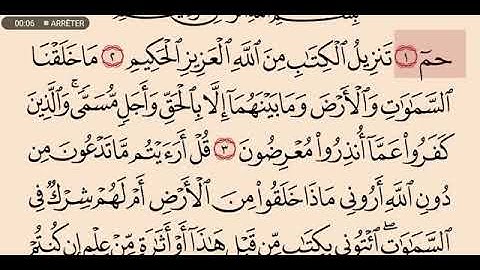 00:06 ■ ARRÊTER
بِسْمِ ٱللَّهِ ٱلرَّحْمَٰنِ ٱلرَّحِيمِ
حمٓ ١ تَنزِيلُ ٱلْكِتَٰبِ مِنَ ٱللَّهِ ٱلْعَزِيزِ ٱلْحَكِيمِ ٢ مَا خَلَقْنَا
ٱلسَّمَٰوَٰتِ وَٱلْأَرْضَ وَمَا بَيْنَهُمَآ إِلَّا بِٱلْحَقِّ وَأَجَلٍ مُّسَمًّى ۚ وَٱلَّذِينَ
كَفَرُوا۟ عَمَّآ أُنذِرُوا۟ مُعْرِضُونَ ٣ قُلْ أَرَءَيْتُم مَّا تَدْعُونَ مِن
دُونِ ٱللَّهِ أَرُونِى مَاذَا خَلَقُوا۟ مِنَ ٱلْأَرْضِ أَمْ لَهُمْ شِرْكٌ فِى
ٱلسَّمَٰوَٰتِ ۖ ٱئْتُونِى بِكِتَٰبٍ مِّن قَبْلِ هَٰذَآ أَوْ أَثَٰرَةٍ مِّنْ عِلْمٍ إِن كُنتُمْ